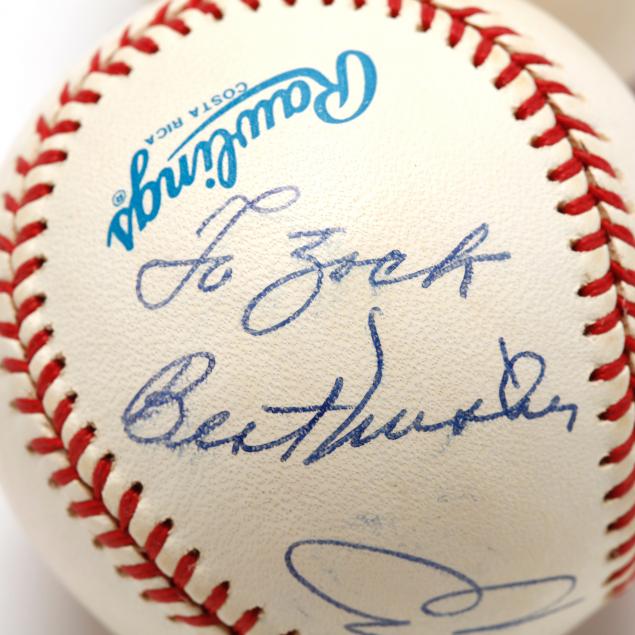 Rawlings®
COSTA RICA
To Zack
Best Wishes